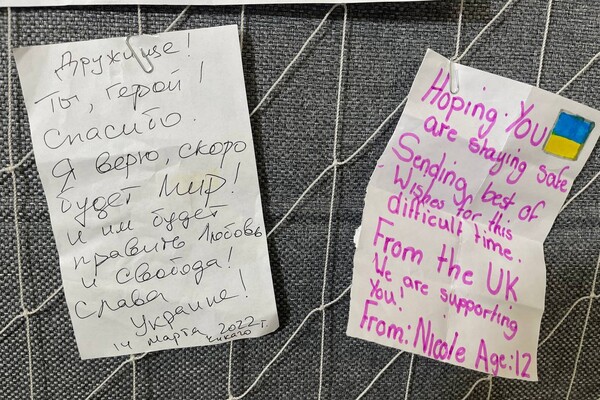 Дружище!
Ты, герой!
Спасибо.
Я верю, скоро
будет Мир!
и им будет
править Любовь
и Свобода!
Слава
Украине!
14 марта 2022 г.
Чикаго
Hoping You
are staying safe
Sending best of
Wishes for this
difficult time.
From the UK
We are supporting
You!
From: Nicole Age:12